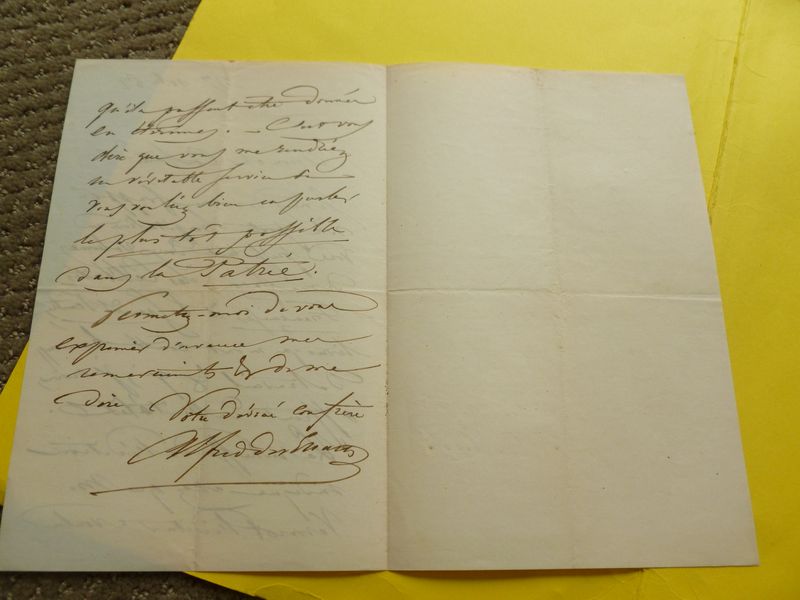 qu'ils puissent être donnés
en étrennes. — C'est vous
dire que vous me rendriez
un véritable service si
vous vouliez bien en parler
le plus tôt possible
dans la Patrie.
Permettez-moi de vous
exprimer d'avance mes
remerciements & de me
dire Votre dévoué confrère
Alfred des Essarts